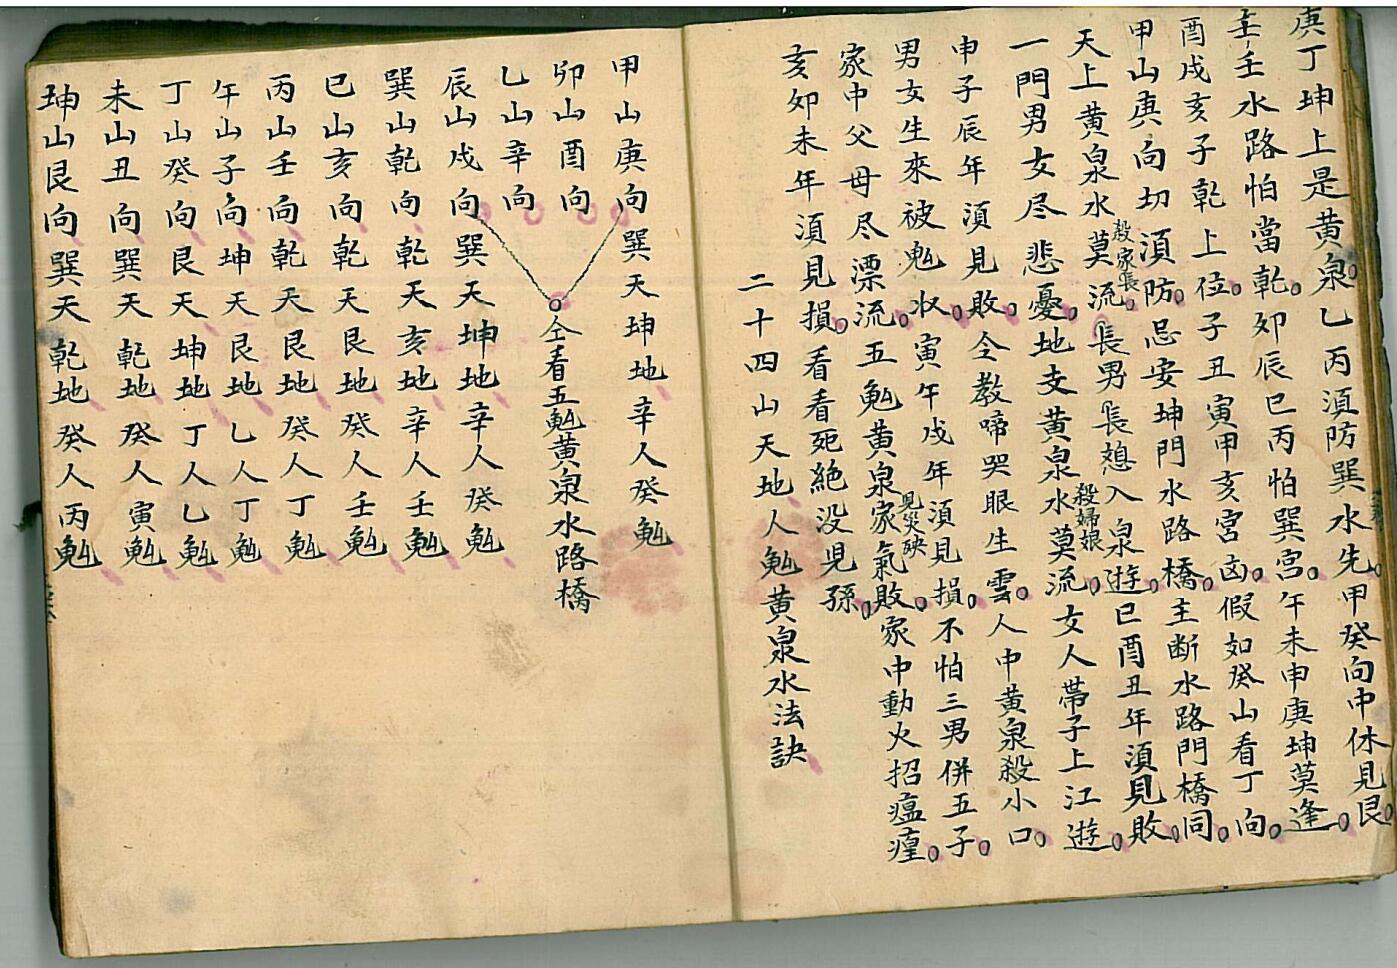 庚丁坤上是黄泉。乙丙須防巽水先。甲癸向中休見艮。
壬水路怕當乾。卯辰巳丙怕巽宮。午未申庚坤莫逢。
酉戌亥子乾上位。子丑寅甲亥宮凶。假如癸山看丁向。
甲山庚向切須防。忌安坤門水路橋。主断水路門橋同。
天上黄泉水莫流。長男長媳入泉遊。巳酉丑年須見敗。
殺家長
一門男女尽悲憂。地支黄泉水莫流。女人帯子上江遊。
殺婦娘
申子辰年須見敗。仝教啼哭眼生雲。人中黄泉殺小口。
男女生來被鬼收。寅午戌年須見損。不怕三男併五子。
家中父母尽漂流。五鬼黄泉家氣敗。家中動火招瘟瘟。
見災殃
亥卯未年須見損。看看死絕没児孫。
二十四山天地人鬼黄泉水法訣
甲山庚向巽天坤地辛人癸鬼
卯山酉向
仝看五鬼黄泉水路橋
乙山辛向
辰山戌向巽天坤地辛人癸鬼
巽山乾向乾天亥地辛人壬鬼
巳山亥向乾天艮地癸人壬鬼
丙山壬向乾天艮地癸人丁鬼
午山子向坤天艮地乙人丁鬼
丁山癸向艮天坤地丁人乙鬼
未山丑向巽天乾地癸人寅鬼
坤山艮向巽天乾地癸人丙鬼